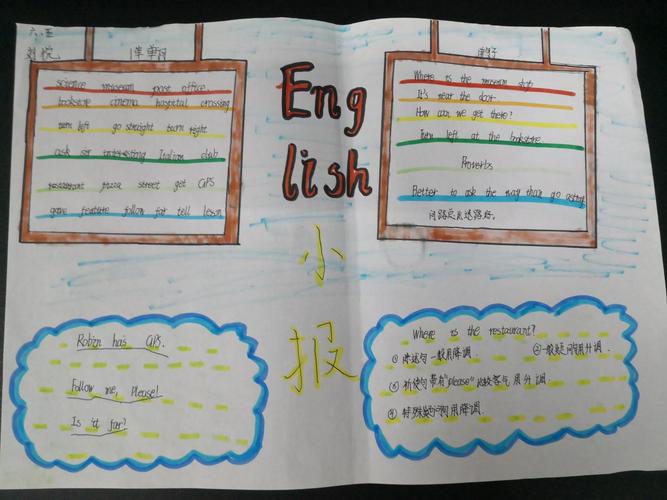 六.五
1单单词
science museum post office.
bookstore cinema hospital crossing
turn left go straight turn right
ask sir interesting Italian club
restaurant pizza street get GPS
gave feature follow far tell lesson
Eng
lish
小
报
句子
Where is the museum shop
It's near the door
How can we get there?
Turn left at the bookstore.
Proverbs
Better to ask the way than go astray
问路定比迷路好.
Robin has GPS.
Follow me, Please!
Is it far?
Where is the restaurant?
① 陈述句一般用降调. ②一般疑问句用升调.
③ 祈使句带有"please"比较客气 用升调.
④ 特殊疑问句用降调.